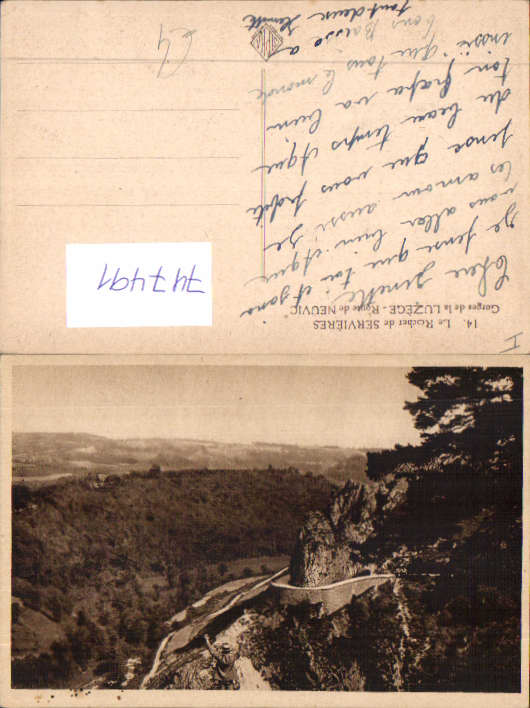 14. Le Rocher de SERVIÈRES
Gorges de la LUZÈGE - Route de NEUVIC
Chère ginette
Je pense que toi et Jans
vous aller bien et que
les amour aussi Je
pense que vous profite
du beau temps et que
ton papa va bien
ainssi que tous le monde
bons Baisse a
tout deux
747491